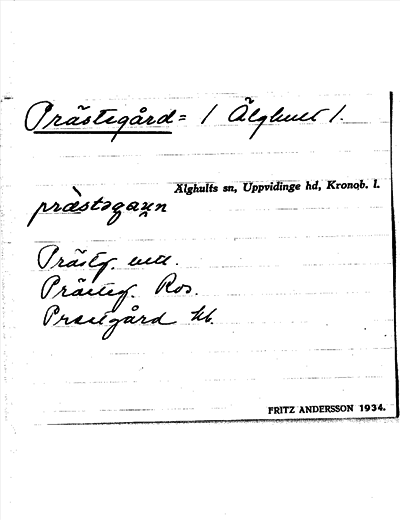 Prästegård = / Älghult /.
Älghults sn, Uppvidinge hd, Kronob. l.
præ̀stəgaʉ̯n
Prästg.
Prästeg. Ros.
Præstgård hb.
FRITZ ANDERSSON 1934.